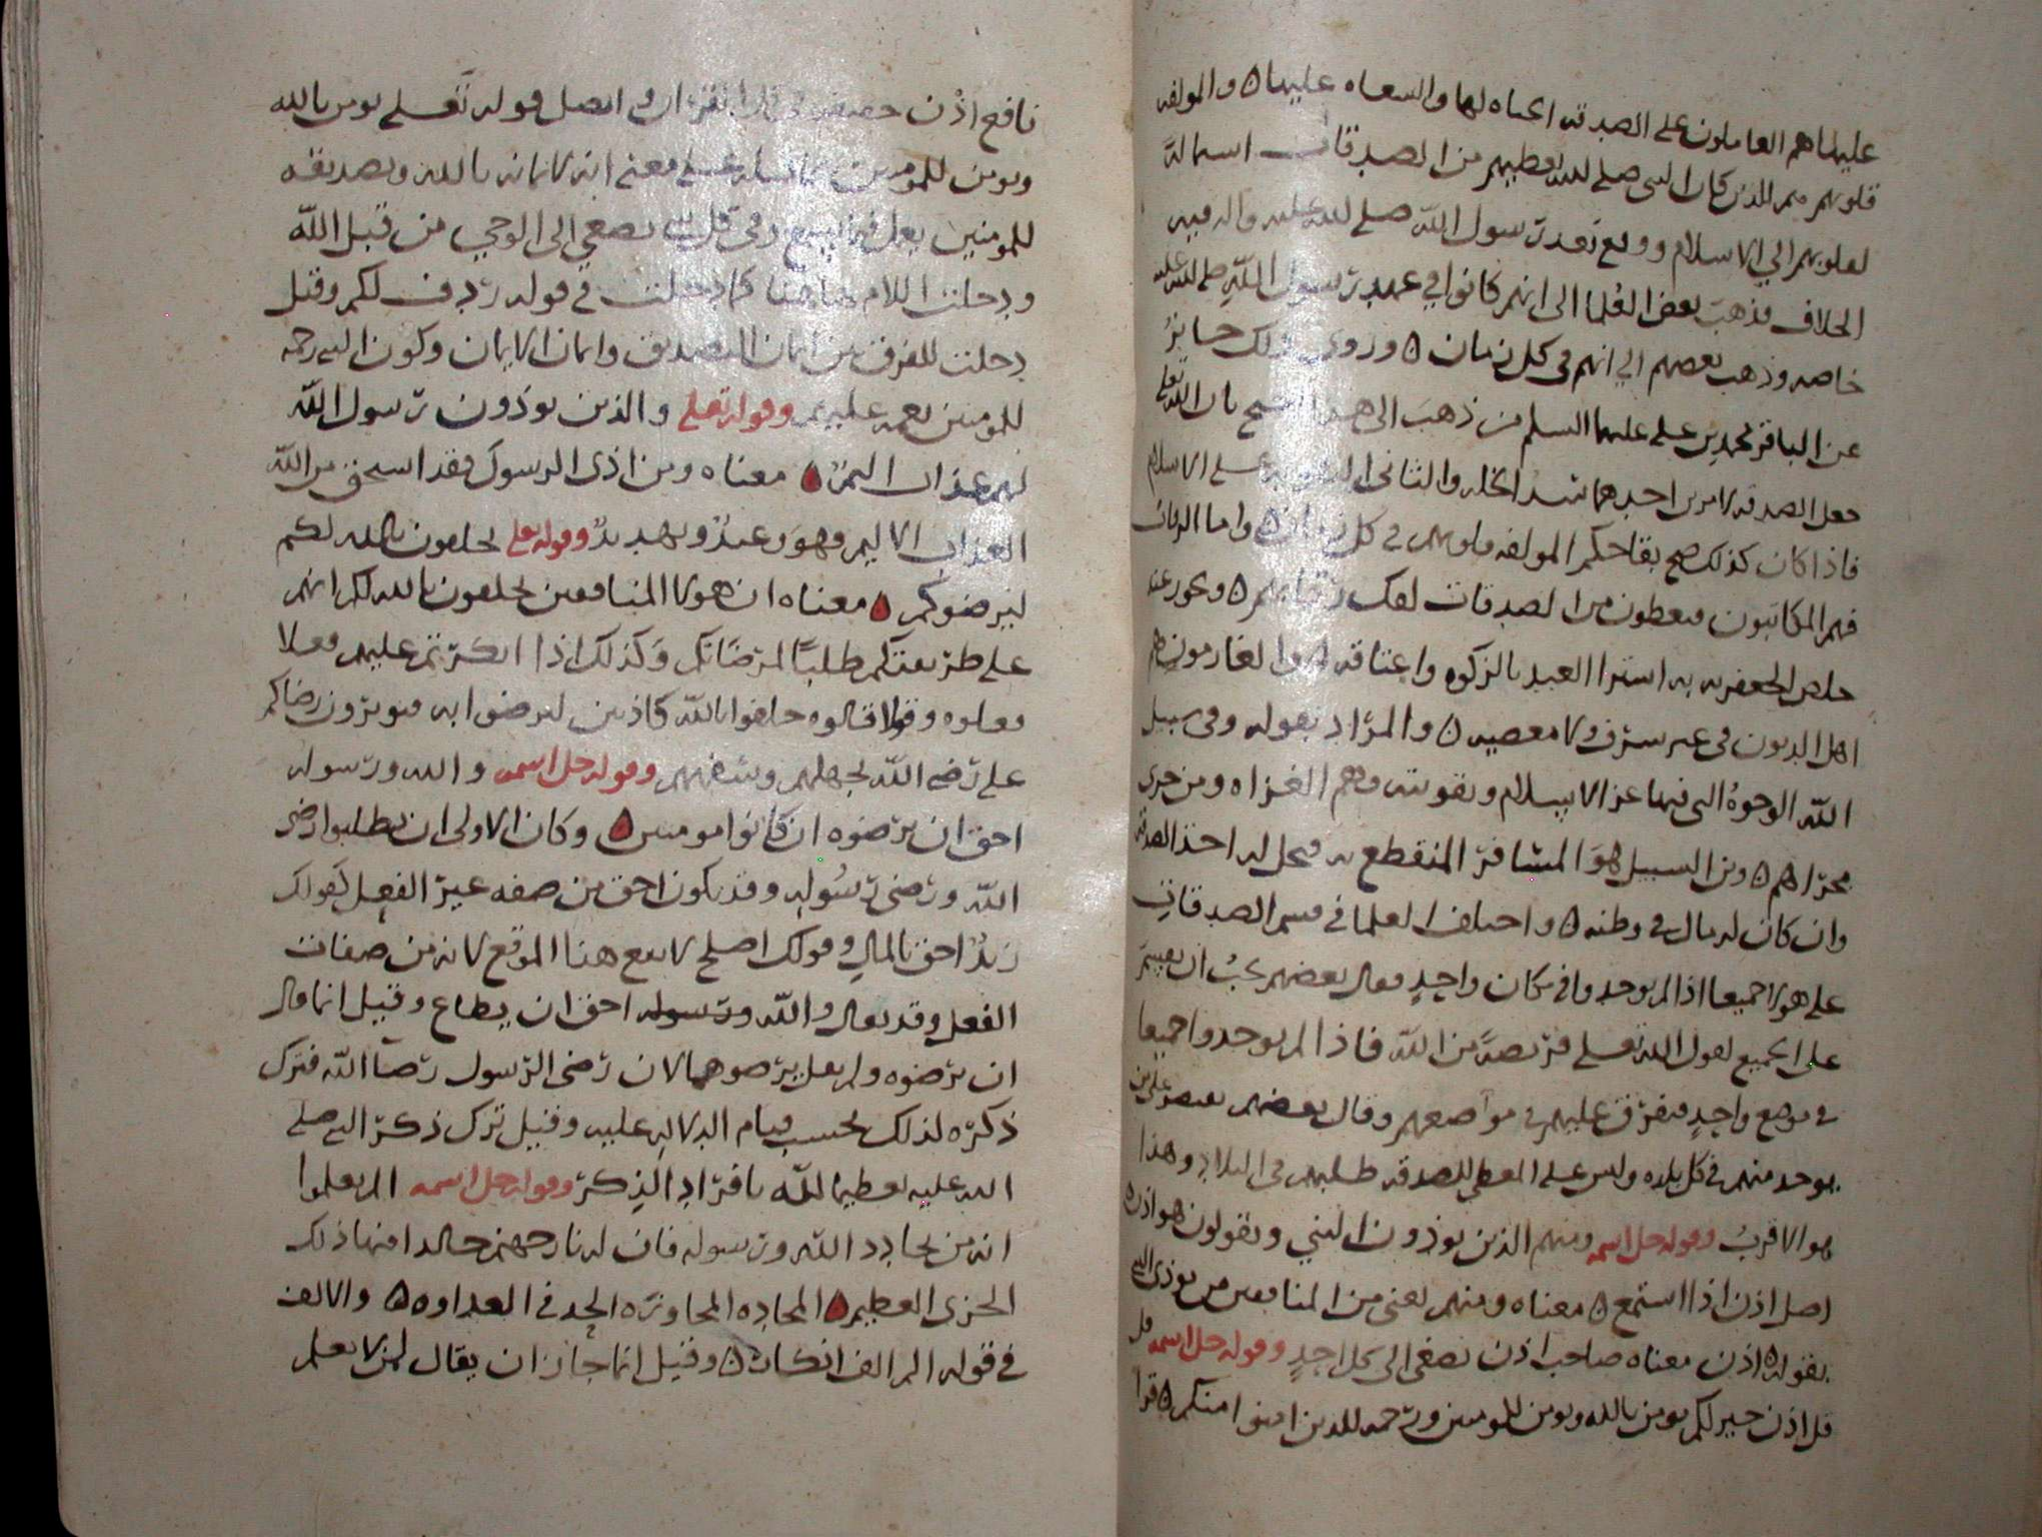 عليها هم العاملون على الصدقة الجباه لها والسعاه عليها ٥ والمولفه
قلوبهم هم الذين كان النبي صلى الله يعطيهم من الصدقات استمالة
لقلوبهم الي الاسلام ووقع بعد رسول الله صلى الله عليه واله فيه
الخلاف فذهب بعض العلما الى انهم كانوا في عهد رسول الله صلى الله عليه
خاصه وذهب بعضهم الي انهم في كل زمان ٥ وروى ذلك جابر
عن الباقر محمد بن على عليهما السلم من ذهب الى هذا بان الله تعلى
جعل الصدقه لامرين احدهما سد الخله والثاني على الاسلام
فاذا كان كذلك صح بقا حكم المولفه قلوبهم في كل زمان ٥ واما الرقاب
فهم المكاتبون فيعطون من الصدقات لفك رقابهم ٥ ويجوز عند
اشترا العبد بالزكوه واعتاقه والغارمون هم
اهل الديون في غير سرف ولا معصيه ٥ والمراد بقوله وفي سبيل
الله الوجوه التي فيها عز الاسلام وتقويته وهم الغزاه ومن جرى
مجراهم ٥ وبن السبيل هو المسافر المنقطع به فيحل له اخذ الصدقه
وان كان له مال في وطنه ٥ واختلف العلما في قسم الصدقات
على هولا جميعا اذا لم يوجدوا في مكان واحد فقال بعضهم يجب ان يقسم
على الجميع لقول الله تعلى فريضة من الله فاذا لم يوجدوا جميعا
في موضع واحد فيفرق عليهم في مواضعهم وقال بعضهم يقتصر على من
يوجد منهم في كل بلده وليس على المعطي للصدقه طلبهم في البلاد وهذا
هو الاقرب وقوله جل اسمه ومنهم الذين يوذون النبي ويقولون هو اذن ٥
اصل اذن اذا استمع ٥ معناه ومنهم يعني من المنافقين من يوذي النبي
بقوله ٥ اذن معناه صاحب اذن يصغي الى كل احد وقوله جل اسمه قل
قل اذن خير لكم يومن بالله ويومن للمومنين ورحمه للذين امنوا منكم ٥ قرا
نافع اذن خفيفه في القران اتصل قوله تعلى يومن بالله
ويومن للمومنين بما قبله على معنى انه لايمانه بالله وتصديقه
للمومنين يعمل فيما يسمع يصغي الى الوحي من قبل الله
ودخلت اللام هاهنا كما دخلت في قوله ردف لكم وقيل
دخلت للفرق بين ايمان التصديق وايمان الايمان وكون النبي رحمه
للمومنين نعمه عليهم وقوله تعلى والذين يوذون رسول الله
لهم عذاب اليم ٥ معناه ومن اذى الرسول فقد استحق من الله
العذاب الاليم وهو وعيد وتهديد وقوله تعلى يحلفون بالله لكم
ليرضوكم ٥ معناه ان هولا المنافقين يحلفون بالله لكم انهم
على طريقتكم طلبا لمرضاتكم وكذلك اذا انكرتم عليهم فعلا
فعلوه وقولا قالوه حلفوا بالله كاذبين ليرضوا به فيوثرون رضاكم
على رضى الله لجهلهم وسفههم وقوله جل اسمه والله ورسوله
احق ان يرضوه ان كانوا مومنين ٥ وكان الاولى ان يطلبوا رضى
الله ورضى رسوله وقد يكون احق من صفه غير الفعل كقولك
زيد احق بالمال وقولك اصلح لا يقع هذا الموقع لانه من صفات
الفعل وقد يقال والله ورسوله احق ان يطاع وقيل انما قال
ان يرضوه ولم يقل يرضوهما لان رضى الرسول رضا الله فترك
ذكره لذلك بحسب قيام الدلاله عليه وقيل ترك ذكر النبي صلى
الله عليه تعظيما لله بافراد الذكر وقوله جل اسمه الم يعلموا
انه من يحادد الله ورسوله فان له نار جهنم خالدا فيها ذلك
الخزي العظيم ٥ المحاده المجاوزه الحد في العداوه ٥ والالف
في قوله الم الف انكار ٥ وقيل انما جاز ان يقال لمن لا يعلم